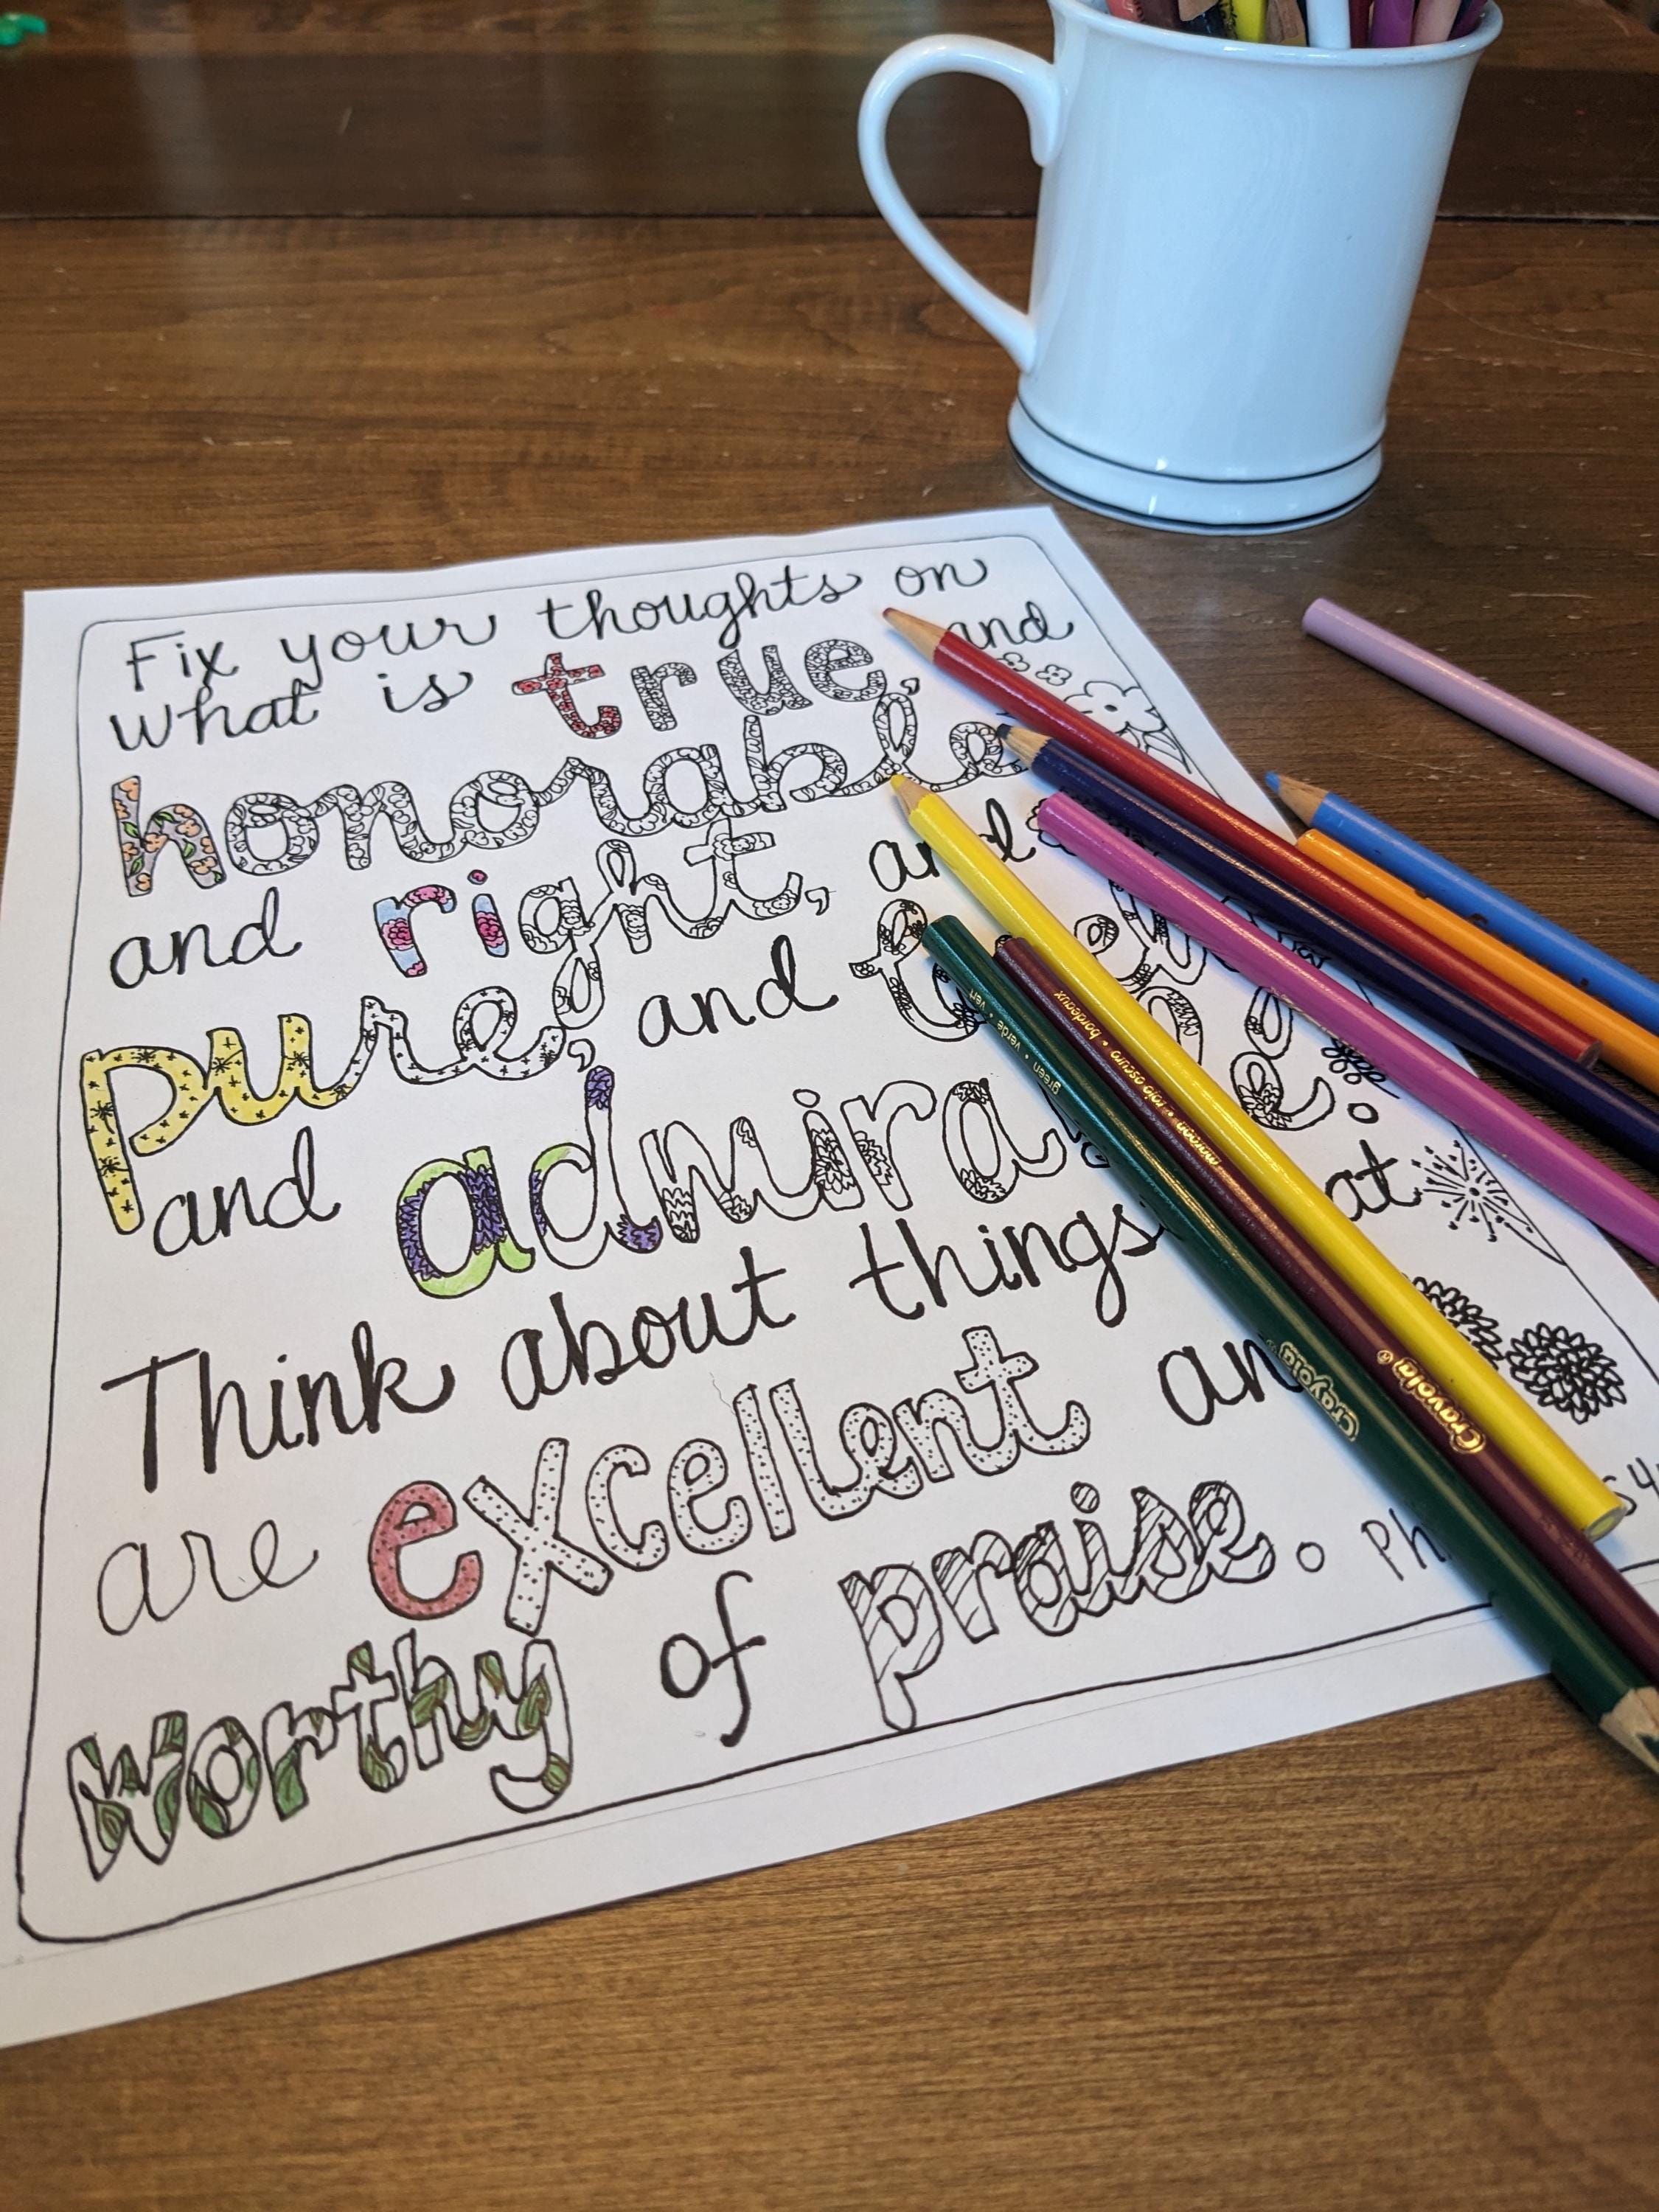 Fix your thoughts on
what is true, and
honorable,
and right, and
pure, and
and
Think about things
are excellent
worthy of praise.
green • verde • vert
maroon • rojo oscuro • bordeaux
Crayola
Crayola®